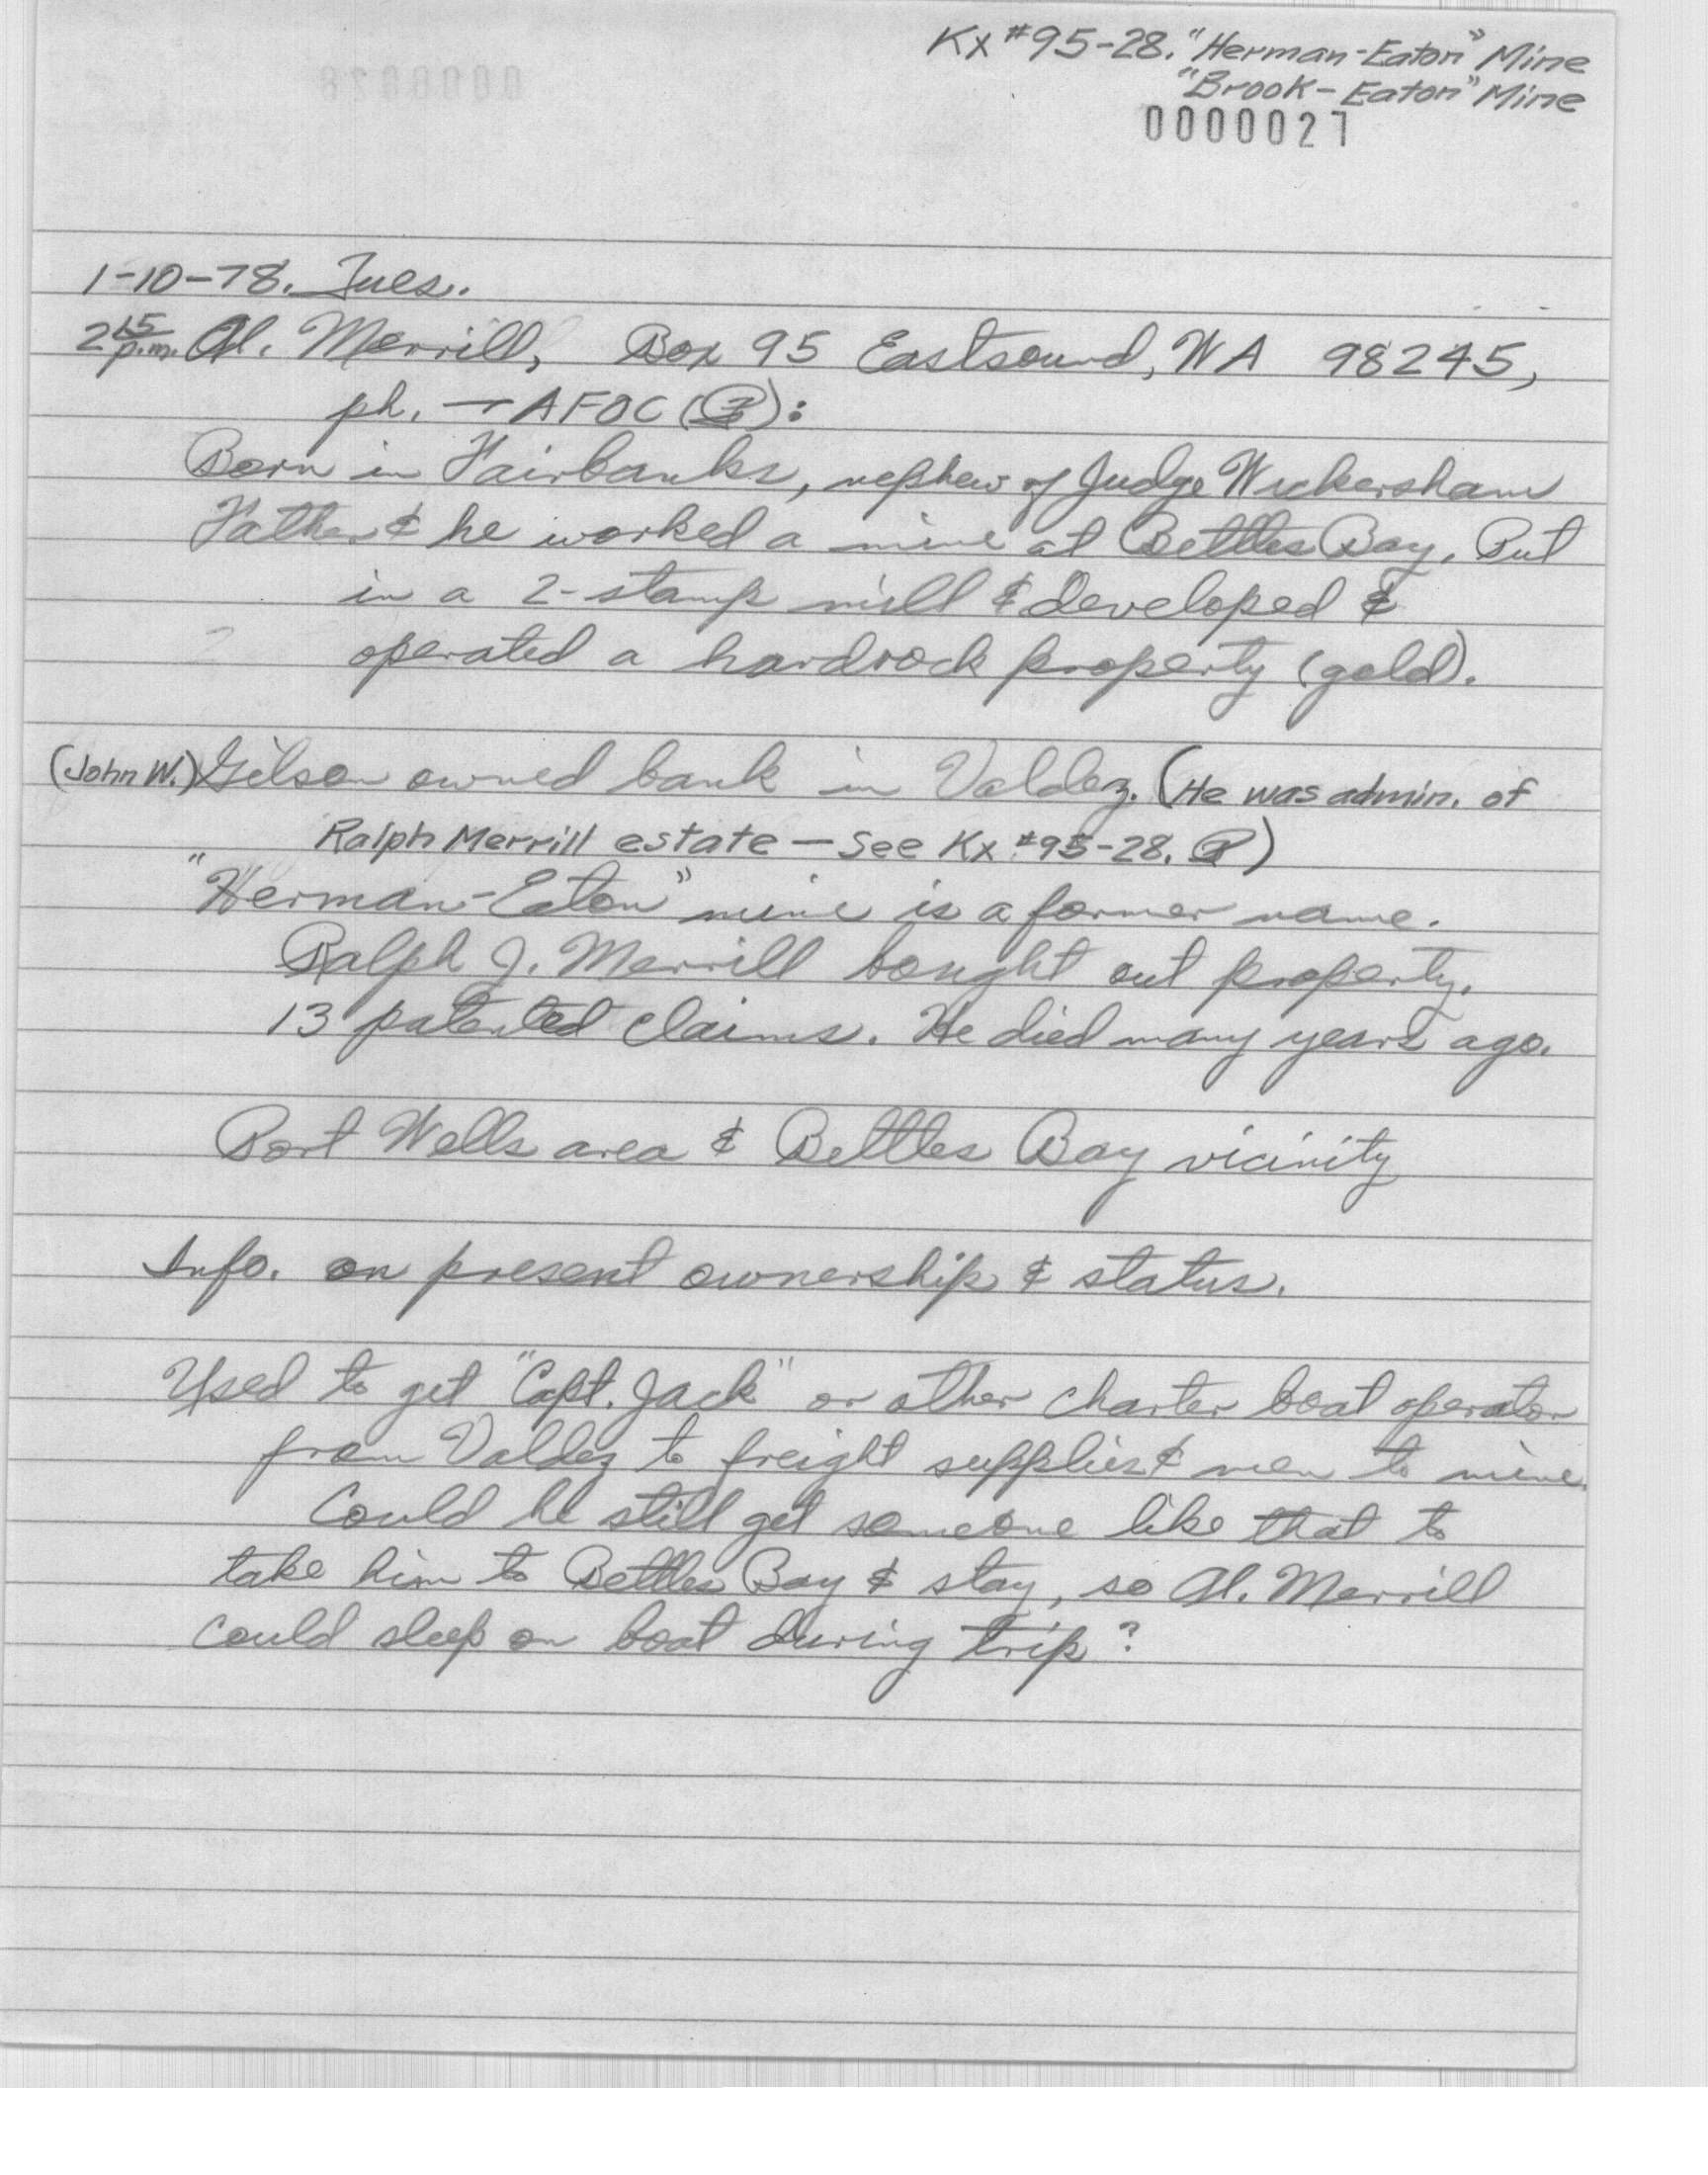 Kx #95-28. "Herman-Eaton" Mine
"Brook-Eaton" Mine
0000027
1-10-78. Tues.
2 15 p.m. Al. Merrill, Box 95 Eastsound, WA 98245,
ph. → AFOC ():
Born in Fairbanks, nephew of Judge Wickersham
Father & he worked a mine at Bettles Bay. Put
in a 2-stamp mill & developed &
operated a hardrock property (gold).
(John W.) Gilson owned bank in Valdez. (He was admin. of
Ralph Merrill estate — See Kx #95-28. )
"Herman-Eaton" mine is a former name.
Ralph J. Merrill bought out property.
13 patented claims. He died many years ago.
Port Wells area & Bettles Bay vicinity
Info. on present ownership & status.
Used to get "Capt. Jack" or other charter boat operator
from Valdez to freight supplies & men to mine.
Could he still get someone like that to
take him to Bettles Bay & stay, so Al. Merrill
could sleep on boat during trip?